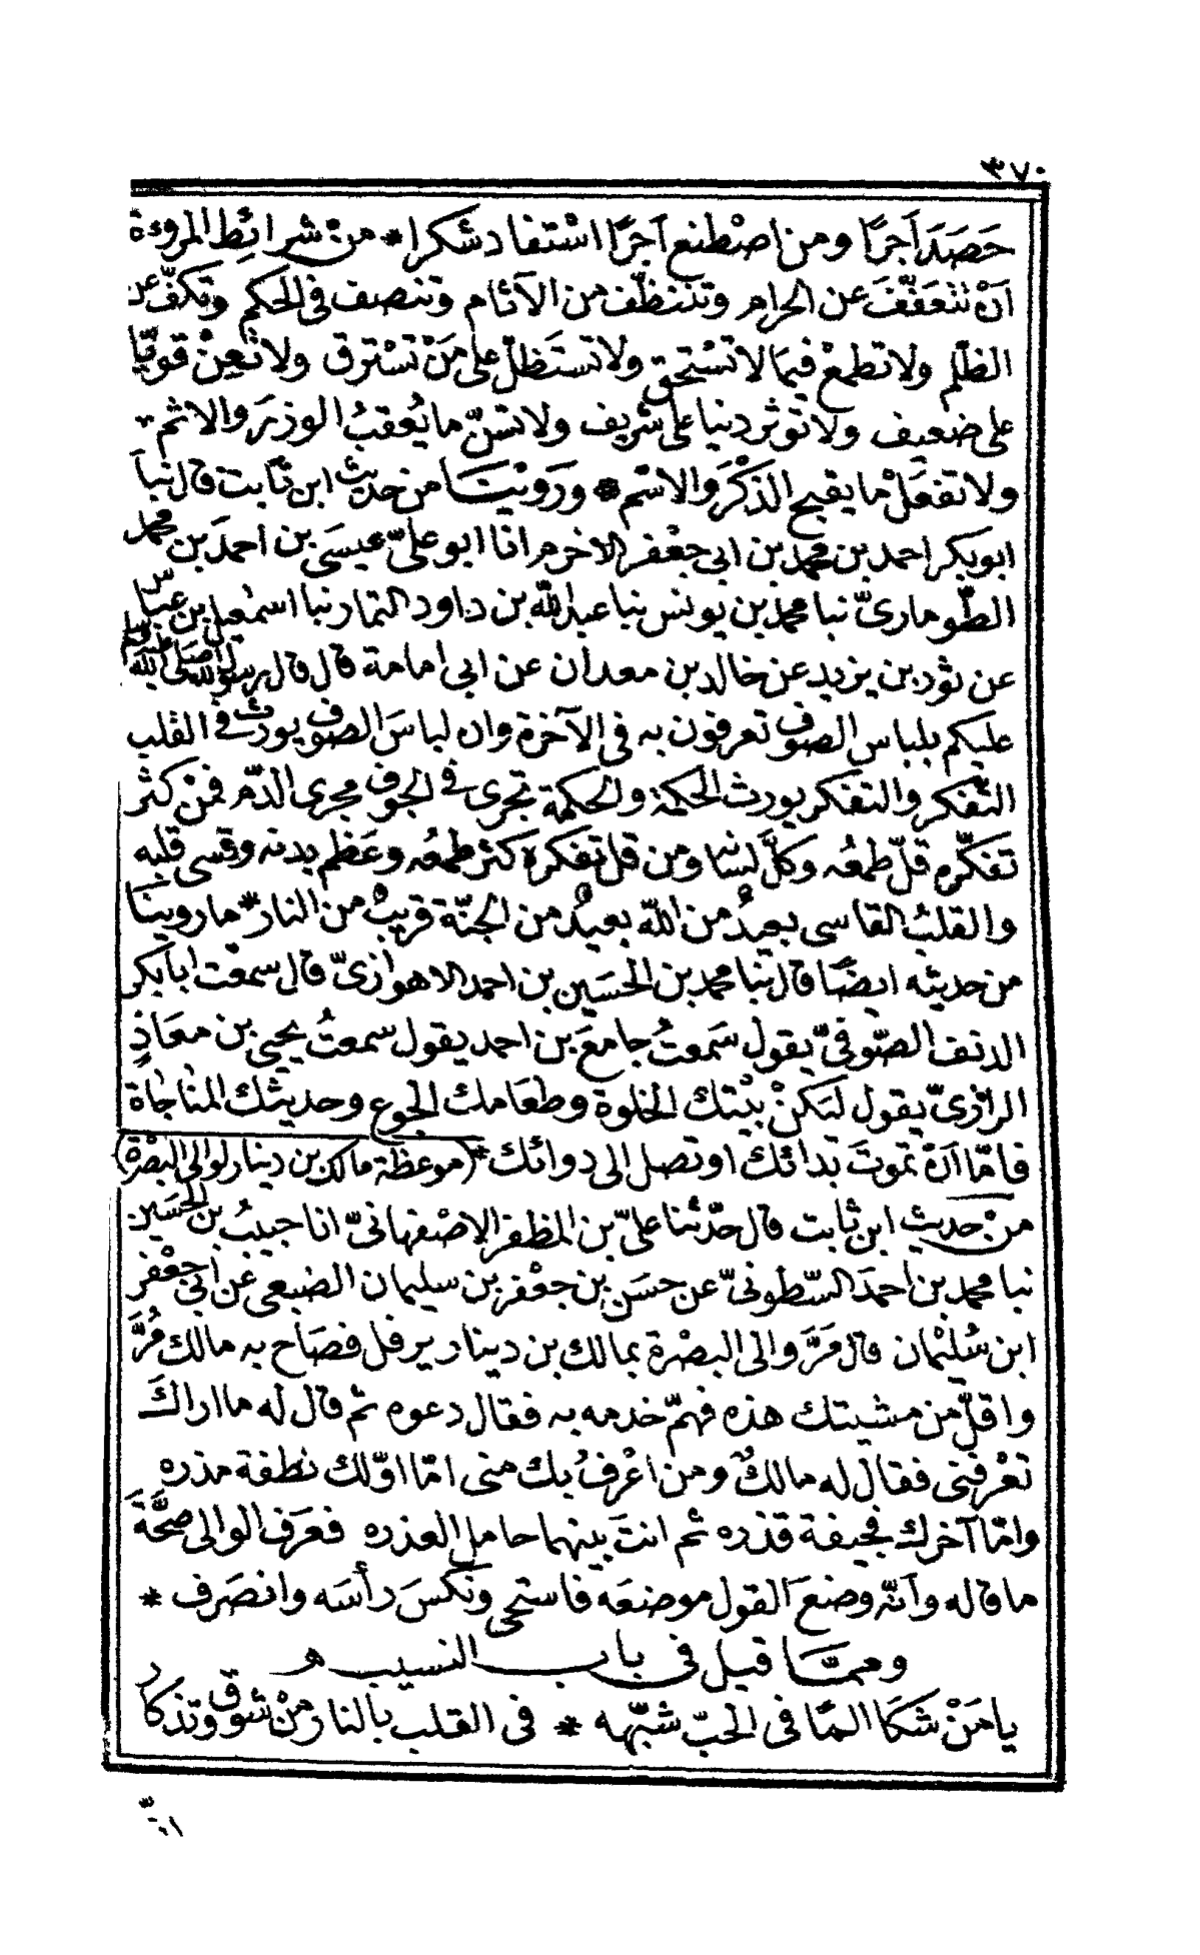 ٣٧٠
حَصَدَ اَجرًا ومن اصْطنع آجرًا اسْتفاد شكرا * منْ شرائِط المروءة
اَنْ تتعَفّفَ عن الحرام وتتنظّف من الآثام وتنصف فى الحكم وتكفّ عن
الظلم ولا تطمعْ فيما لا تسْتحق ولا تستَظلّ على مَنْ تسْترق ولا تعِنْ قويّا
على ضعيف ولا توثر دنيا على شريف ولا تسّ ما يُعقبُ الوزرَ والاثم
ولا تفعَلْ ما يقبح الذكْرَ والاسْم * وَرَوَيْنَا من حديث ابن ثابت قال نبا
ابوبكر احمد بن محمد بن ابى جعْفر الاخرم انا ابو علىّ عيسَى بن احمدَ بن محمد
الطّومارىّ نبا محمد بن يونس نبا عبدالله بن داود التمار نبا اسمعيل بن عيّاس
عن ثور بن يزيد عن خالد بن معدان عن ابى امامة قال قال رسول الله صلى الله عليه وسلم
عليكم بلباس الصوف تعرفون به فى الآخرة وان لباسَ الصوف يورث فى القلب
التفكر والتفكر يورث الحكمة والحكمة تجرى فى الجوف مجرى الدّم فمنْ كثر
تفكّره قلّ طمعُه وكلَّ لسانه ومن قل تفكره كثر طمعُه وعَظم بدنه وقسى قلبه
والقلبُ القاسى بعيدٌ من الله بعيدٌ من الجنّة قريبٌ من النار * ما روينَا
من حديثه ايضًا قال نبا محمد بن الحسَين بن احمد الاهوازىّ قال سمعْت ابا بكر
الدنف الصّوفىّ يقول سَمعتُ جامعَ بن احمد يقول سمعتُ يحيى بن معَاذٍ
الرازىّ يقول لتكنْ بيْتك الخلوة وطعَامك الجوع وحديثك المناجاة
فامّا اَنْ تموتَ بدائك او تصل الى دوائك * (موعظة مالك بن دينار لوالى البصْرة)
منْ حديث ابن ثابت قال حدّثنا علىّ بن المظفر الاصْفهانىّ انا حبيبُ بن الحسَين
نبا محمد بن احمدَ السّطونىّ عن حسَن بن جعْفر بن سليمان الضبعى عن ابى جعْفر
ابن سُليْمان قال مَرَّ والى البصْرة بمالك بن دينار يرفل فصَاح به مالك مُرَّ
واقلّ من مشيتك هذه فهمّ خدمه به فقال دعوه ثم قال له ما اراكَ
تعْرفنى فقال له مالكٌ ومن اعْرفُ بك منى امّا اوّلك نطفة مذره
وامّا آخرك فجيفة قذره ثم انتَ بينهما حامل العذره فعرَف الوالى صحَّةَ
ما قاله وانّه وضعَ القول موضعَه فاستحى ونكسَ رأسَه وانصَرف *
وممّا قيل فى باب النسيب
يا مَنْ شكَا المًا فى الحبّ شبّهه * فى القلب بالنار منْ شوق وتذكار